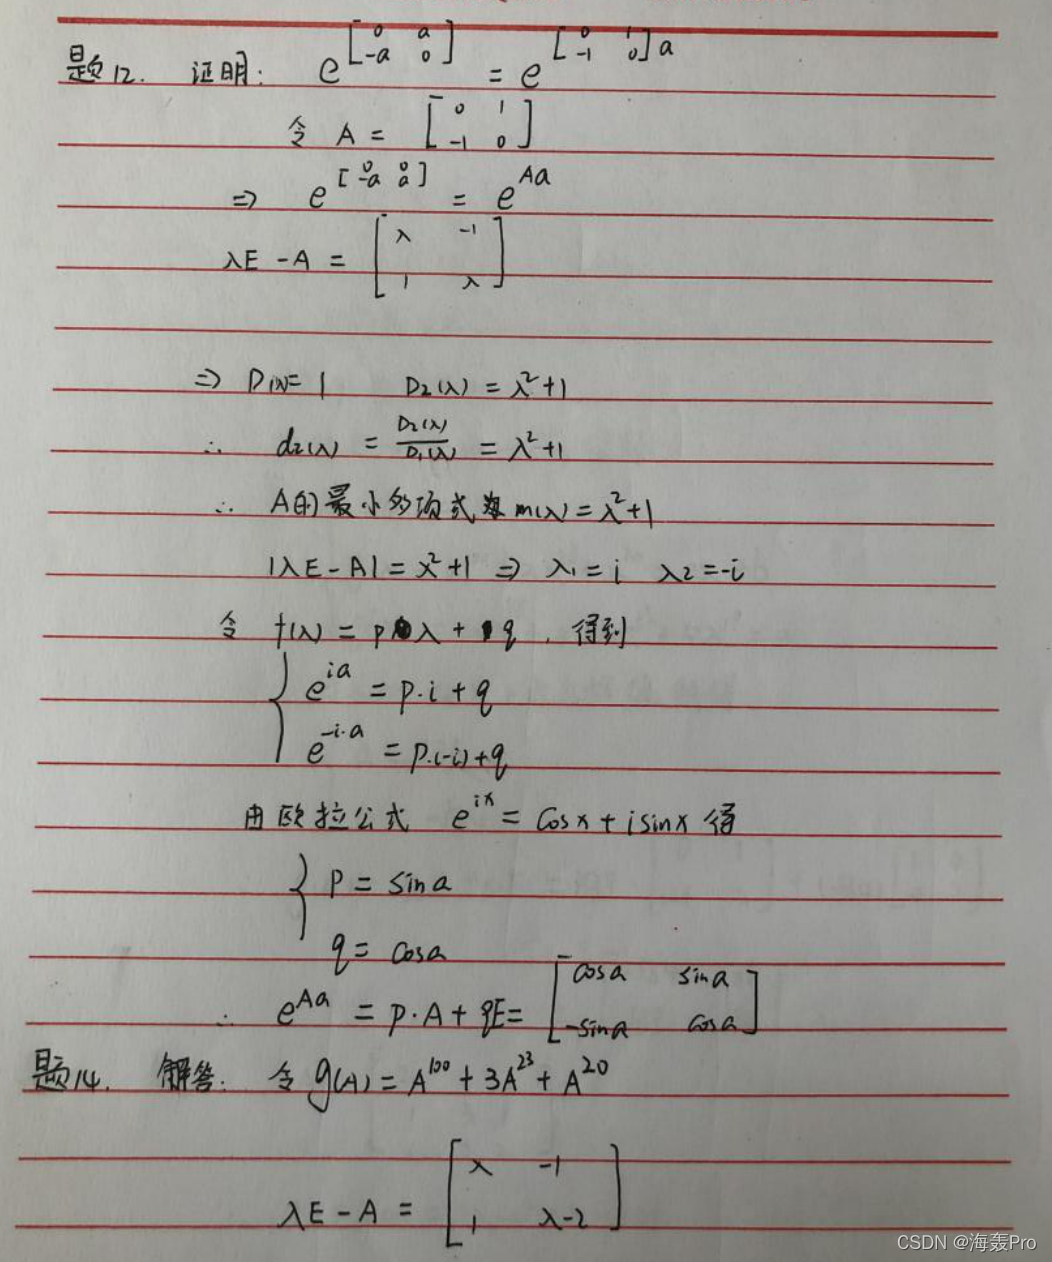 题12. 证明: e^[0 a; -a 0] = e^[0 1; -1 0]a
令 A = [0 1; -1 0]
⇒ e^[0 0; -a a] = e^Aa
λE - A = [λ -1; 1 λ]
⇒ D1(λ)= 1 D2(λ) = λ²+1
∴ d2(λ) = D2(λ)/D1(λ) = λ²+1
∴ A的最小多项式为 m(λ) = λ²+1
|λE - A| = λ²+1 ⇒ λ1 = i λ2 = -i
令 f(λ) = pλ + q , 得到
{ e^ia = p·i + q
e^-i·a = p·(-i)+q
由欧拉公式 e^ix = cosx + isinx 得
{ p = sina
q = cosa
∴ e^Aa = p·A + qE = [cosa sina; -sina cosa]
题14. 解答: 令 g(A) = A^100 + 3A^23 + A^20
λE - A = [λ -1; 1 λ-2]
CSDN @海轰Pro